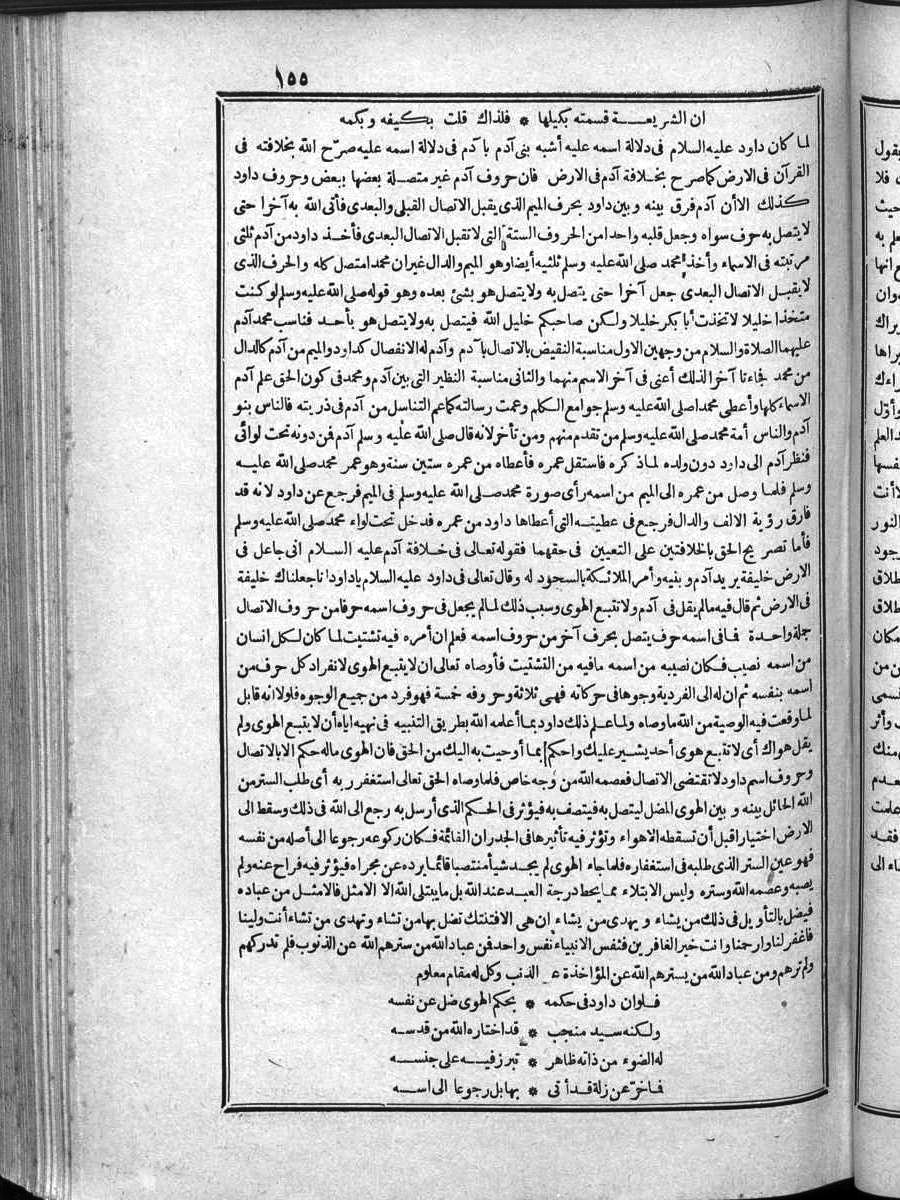 ١٥٥
ان الشريعة قسمته بكيلها * فلذاك قلت بكيفه وبكمه
لما كان داود عليه السلام فى دلالة اسمه عليه أشبه بنى آدم بآدم فى دلالة اسمه عليه صرّح الله بخلافته فى
القرآن فى الارض كما صرح بخلافة آدم فى الارض فان حروف آدم غير متصلة بعضها ببعض وحروف داود
كذلك الا أن آدم فرق بينه وبين داود بحرف الميم الذى يقبل الاتصال القبلى والبعدى فأتى الله به آخرا حتى
لا يتصل به حرف سواه وجعل قلبه واحدا من الحروف الستة التى لا تقبل الاتصال البعدى فأخذ داود من آدم ثلثى
مرتبته فى الاسماء وأخذ محمد صلى الله عليه وسلم ثلثيه أيضا وهو الميم والدال غير ان محمدا متصل كله والحرف الذى
لا يقبل الاتصال البعدى جعل آخرا حتى يتصل به ولا يتصل هو بشئ بعده وهو قوله صلى الله عليه وسلم لو كنت
متخذا خليلا لاتخذت أبا بكر خليلا ولكن صاحبكم خليل الله فيتصل به ولا يتصل هو بأحد فناسب محمد آدم
عليهما الصلاة والسلام من وجهين الاول مناسبة النقيض بالاتصال بآدم وآدم له الانفصال كداود والميم من آدم كالدال
من محمد فجاءتا آخرا لذلك أعنى فى آخر الاسم منهما والثانى مناسبة النظير التى بين آدم ومحمد فى كون الحق علم آدم
الاسماء كلها وأعطى محمدا صلى الله عليه وسلم جوامع الكلم وعمت رسالته كما عم التناسل من آدم فى ذريته فالناس بنو
آدم والناس أمة محمد صلى الله عليه وسلم من تقدم منهم ومن تأخر لانه قال صلى الله عليه وسلم آدم فمن دونه تحت لوائى
فنظر آدم الى داود دون ولده لما ذكره فاستقل عمره فأعطاه من عمره ستين سنة وهو عمر محمد صلى الله عليه
وسلم فلما وصل من عمره الى الميم من اسمه رأى صورة محمد صلى الله عليه وسلم فى الميم فرجع عن داود لانه قد
فارق رؤية الالف والدال فرجع فى عطيته التى أعطاها داود من عمره فدخل تحت لواء محمد صلى الله عليه وسلم
فأما تصريح الحق بالخلافتين على التعيين فى حقهما فقوله تعالى فى خلافة آدم عليه السلام انى جاعل فى
الارض خليفة يريد آدم وبنيه وأمر الملائكة بالسجود له وقال تعالى فى داود عليه السلام يا داود انا جعلناك خليفة
فى الارض ثم قال فيه ما لم يقل فى آدم ولا تتبع الهوى وسبب ذلك لما لم يجعل فى حروف اسمه حرفا من حروف الاتصال
جملة واحدة فما فى اسمه حرف يتصل بحرف آخر من حروف اسمه فعلم ان أمره فيه تشتيت لما كان لكل انسان
من اسمه نصيب فكان نصيبه من اسمه ما فيه من التشتيت فأوصاه تعالى ان لا يتبع الهوى لانفراد كل حرف من
اسمه بنفسه ثم ان له الى الفردية وجوها فى حركاته فهى ثلاثة وحروفه خمسة فهو فرد من جميع الوجوه فلولا انه قابل
لما وقعت فيه الوصية من الله ما وصاه ولما علم ذلك داود بما أعلمه الله بطريق التنبيه فى نهيه اياه أن لا يتبع الهوى ولم
يقل هواك أى لا تتبع هوى أحد يشير عليك واحكم بما أوحيت به اليك من الحق فان الهوى ماله حكم الا بالاتصال
وحروف اسم داود لا تقتضى الاتصال فعصمه الله من وجه خاص فلما وصاه الحق تعالى استغفر ربه أى طلب الستر من
الله الحائل بينه وبين الهوى المضل ليتصل به فيتصف به فيؤثر فى الحكم الذى أرسل به رجع الى الله فى ذلك وسقط الى
الارض اختيارا قبل أن تسقطه الاهواء وتؤثر فيه تأثيرها فى الجدران القائمة فكان ركوعه رجوعا الى أصله من نفسه
فهو عين الستر الذى طلبه فى استغفاره فلما جاء الهوى لم يجد شيأ منتصبا قائما يرده عن مجراه فيؤثر فيه فراح عنه ولم
يصبه وعصمه الله وستره وليس الابتلاء مما يحط درجة العبد عند الله بل ما يبتلى الله الا الامثل فالامثل من عباده
فيضل بالتأويل فى ذلك من يشاء ويهدى من يشاء ان هى الا فتنتك تضل بها من تشاء وتهدى من تشاء أنت ولينا
فاغفر لنا وارحمنا وانت خير الغافرين فنفس الانبياء نفس واحد فمن عباد الله من سترهم الله عن الذنوب فلم تدركهم
ولم ترهم ومن عباد الله من يسترهم الله عن المؤاخذة الذنب وكل له مقام معلوم
فلو ان داود فى حكمه * بحكم الهوى ضل عن نفسه
ولكنه سيد منجب * قد اختاره الله من قدسه
له الضوء من ذاته ظاهر * تبرز فيه على جنسه
فما خرّ عن زلة قد أتى * بها بل رجوعا الى اسه